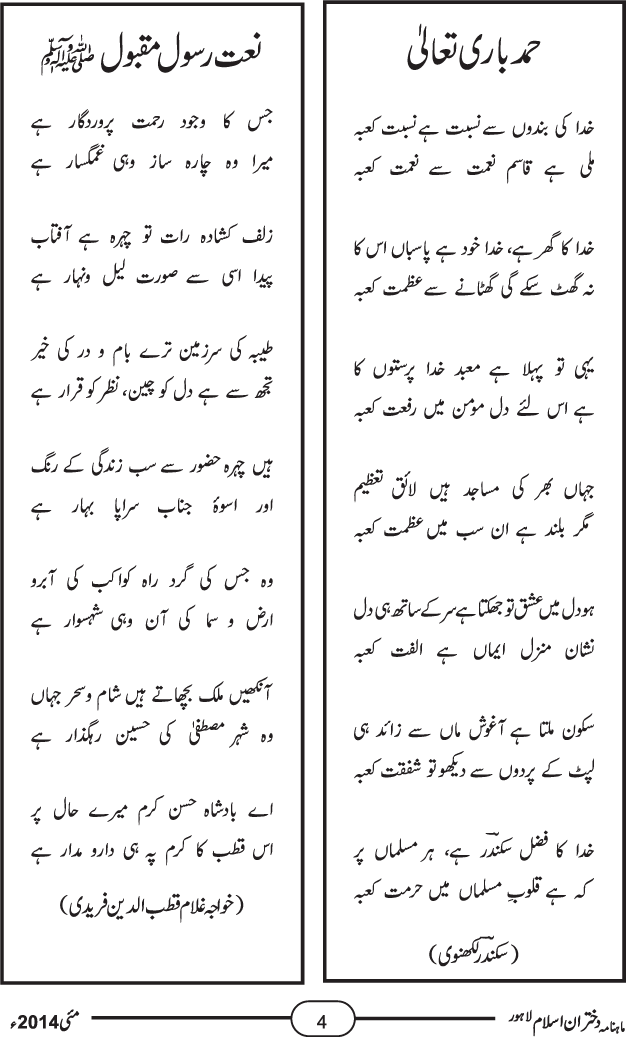 حمد باری تعالیٰ
خدا کی بندوں سے نسبت ہے نسبت کعبہ
ملی ہے قاسم نعمت سے نعمت کعبہ
خدا کا گھر ہے، خدا خود ہے پاسباں اس کا
نہ گھٹ سکے گی گھٹانے سے عظمت کعبہ
یہی تو پہلا ہے معبد خدا پرستوں کا
ہے اس لئے دل مؤمن میں رفعت کعبہ
جہاں بھر کی مساجد ہیں لائق تعظیم
مگر بلند ہے ان سب میں عظمت کعبہ
ہو دل میں عشق تو جھکتا ہے سر کے ساتھ ہی دل
نشان منزل ایماں ہے الفت کعبہ
سکون ملتا ہے آغوش ماں سے زائد ہی
لپٹ کے پردوں سے دیکھو تو شفقت کعبہ
خدا کا فضل سکندرؔ ہے، ہر مسلماں پر
کہ ہے قلوبِ مسلماں میں حرمت کعبہ
(سکندرؔ لکھنوی)
نعت رسول مقبول ﷺ
جس کا وجود رحمت پروردگار ہے
میرا وہ چارہ ساز وہی غمگسار ہے
زلف کشادہ رات تو چہرہ ہے آفتاب
پیدا اسی سے صورت لیل ونہار ہے
طیبہ کی سرزمین ترے بام و در کی خیر
تجھ سے ہے دل کو چین، نظر کو قرار ہے
ہیں چہرہ حضور سے سب زندگی کے رنگ
اور اسوۂ جناب سراپا بہار ہے
وہ جس کی گرد راہ کواکب کی آبرو
ارض و سما کی آن وہی شہسوار ہے
آنکھیں ملک بچھاتے ہیں شام وسحر جہاں
وہ شہر مصطفیٰ کی حسین رہگذار ہے
اے بادشاہ حسن کرم میرے حال پر
اس قطب کا کرم پہ ہی دارو مدار ہے
(خواجہ غلام قطب الدین فریدی)
ماہنامہ دختران اسلام لاہور
4
مئی 2014ء